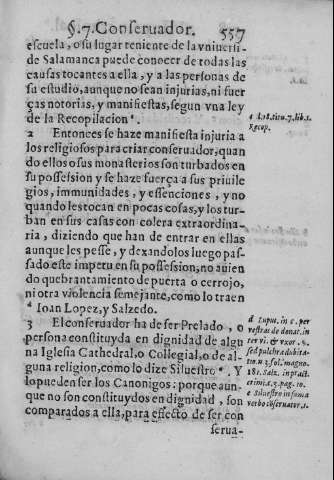 §.7. Conseruador. 557
escuela, o su lugar teniente de la vniuersi-
de Salamanca puede conocer de todas las
causas tocantes a ella, y a las personas de
su estudio, aunque no sean injurias, ni fuer
ças notorias, y manifiestas, segun vna ley
de la Recopilacion ᶜ.
2 Entonces se haze manifiesta injuria a
los religiosos para criar conseruador, quan
do ellos o sus monasterios son turbados en
su possesion y se haze fuerça a sus priuile
gios, immunidades, y essenciones, y no
quando les tocan en pocas cosas, y los tur-
ban en sus casas con colera extraordina-
ria, diziendo que han de entrar en ellas
aunque les pesse, y dexandolos luego pas-
sado este impetu en su possession, no auien
do quebrantamiento de puerta o cerrojo,
ni otra violencia semejante, como lo traen
ᵈ Ioan Lopez, y Salzedo.
3 El conseruador ha de ser Prelado, o
persona constituyda en dignidad de algu
na Iglesia Cathedral, o Collegial, o de al-
guna religion, como lo dize Siluestro ᵉ. Y
lo pueden ser los Canonigos: porque aun-
que no son constituydos en dignidad, son
comparados a ella, para effecto de ser con
serua-
l.18.titu.7.lib.1.
Recop.
d Lupus. in c. per
vestras de donat. in
ter vi. & vxor. §.
sed pulchra dubita-
tio. n.2. fol. magno.
181. Salz. in pract.
crimi. c.3. pag. 10.
e Siluestro in suma
verbo conseruator.1.